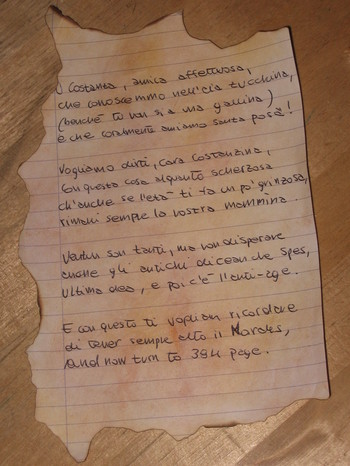 O Costanza, amica affettuosa,
che conoscemmo nell'età tacchina,
(benché tu non sia una gallina)
e che coralmente amiamo senza posa!
Vogliamo dirti, cara Costanzina,
con questa cosa alquanto scherzosa
ch'anche se l'età ti fa un po' grinzosa,
rimani sempre la nostra mammina.
Ventun son tanti, ma non disperare
anche gli antichi dicean che Spes,
ultima dea, e poi c'è l'anti-age.
E con questo ti vogliam ricordare
di tener sempre alto il Mordes,
And now turn to 394 page.